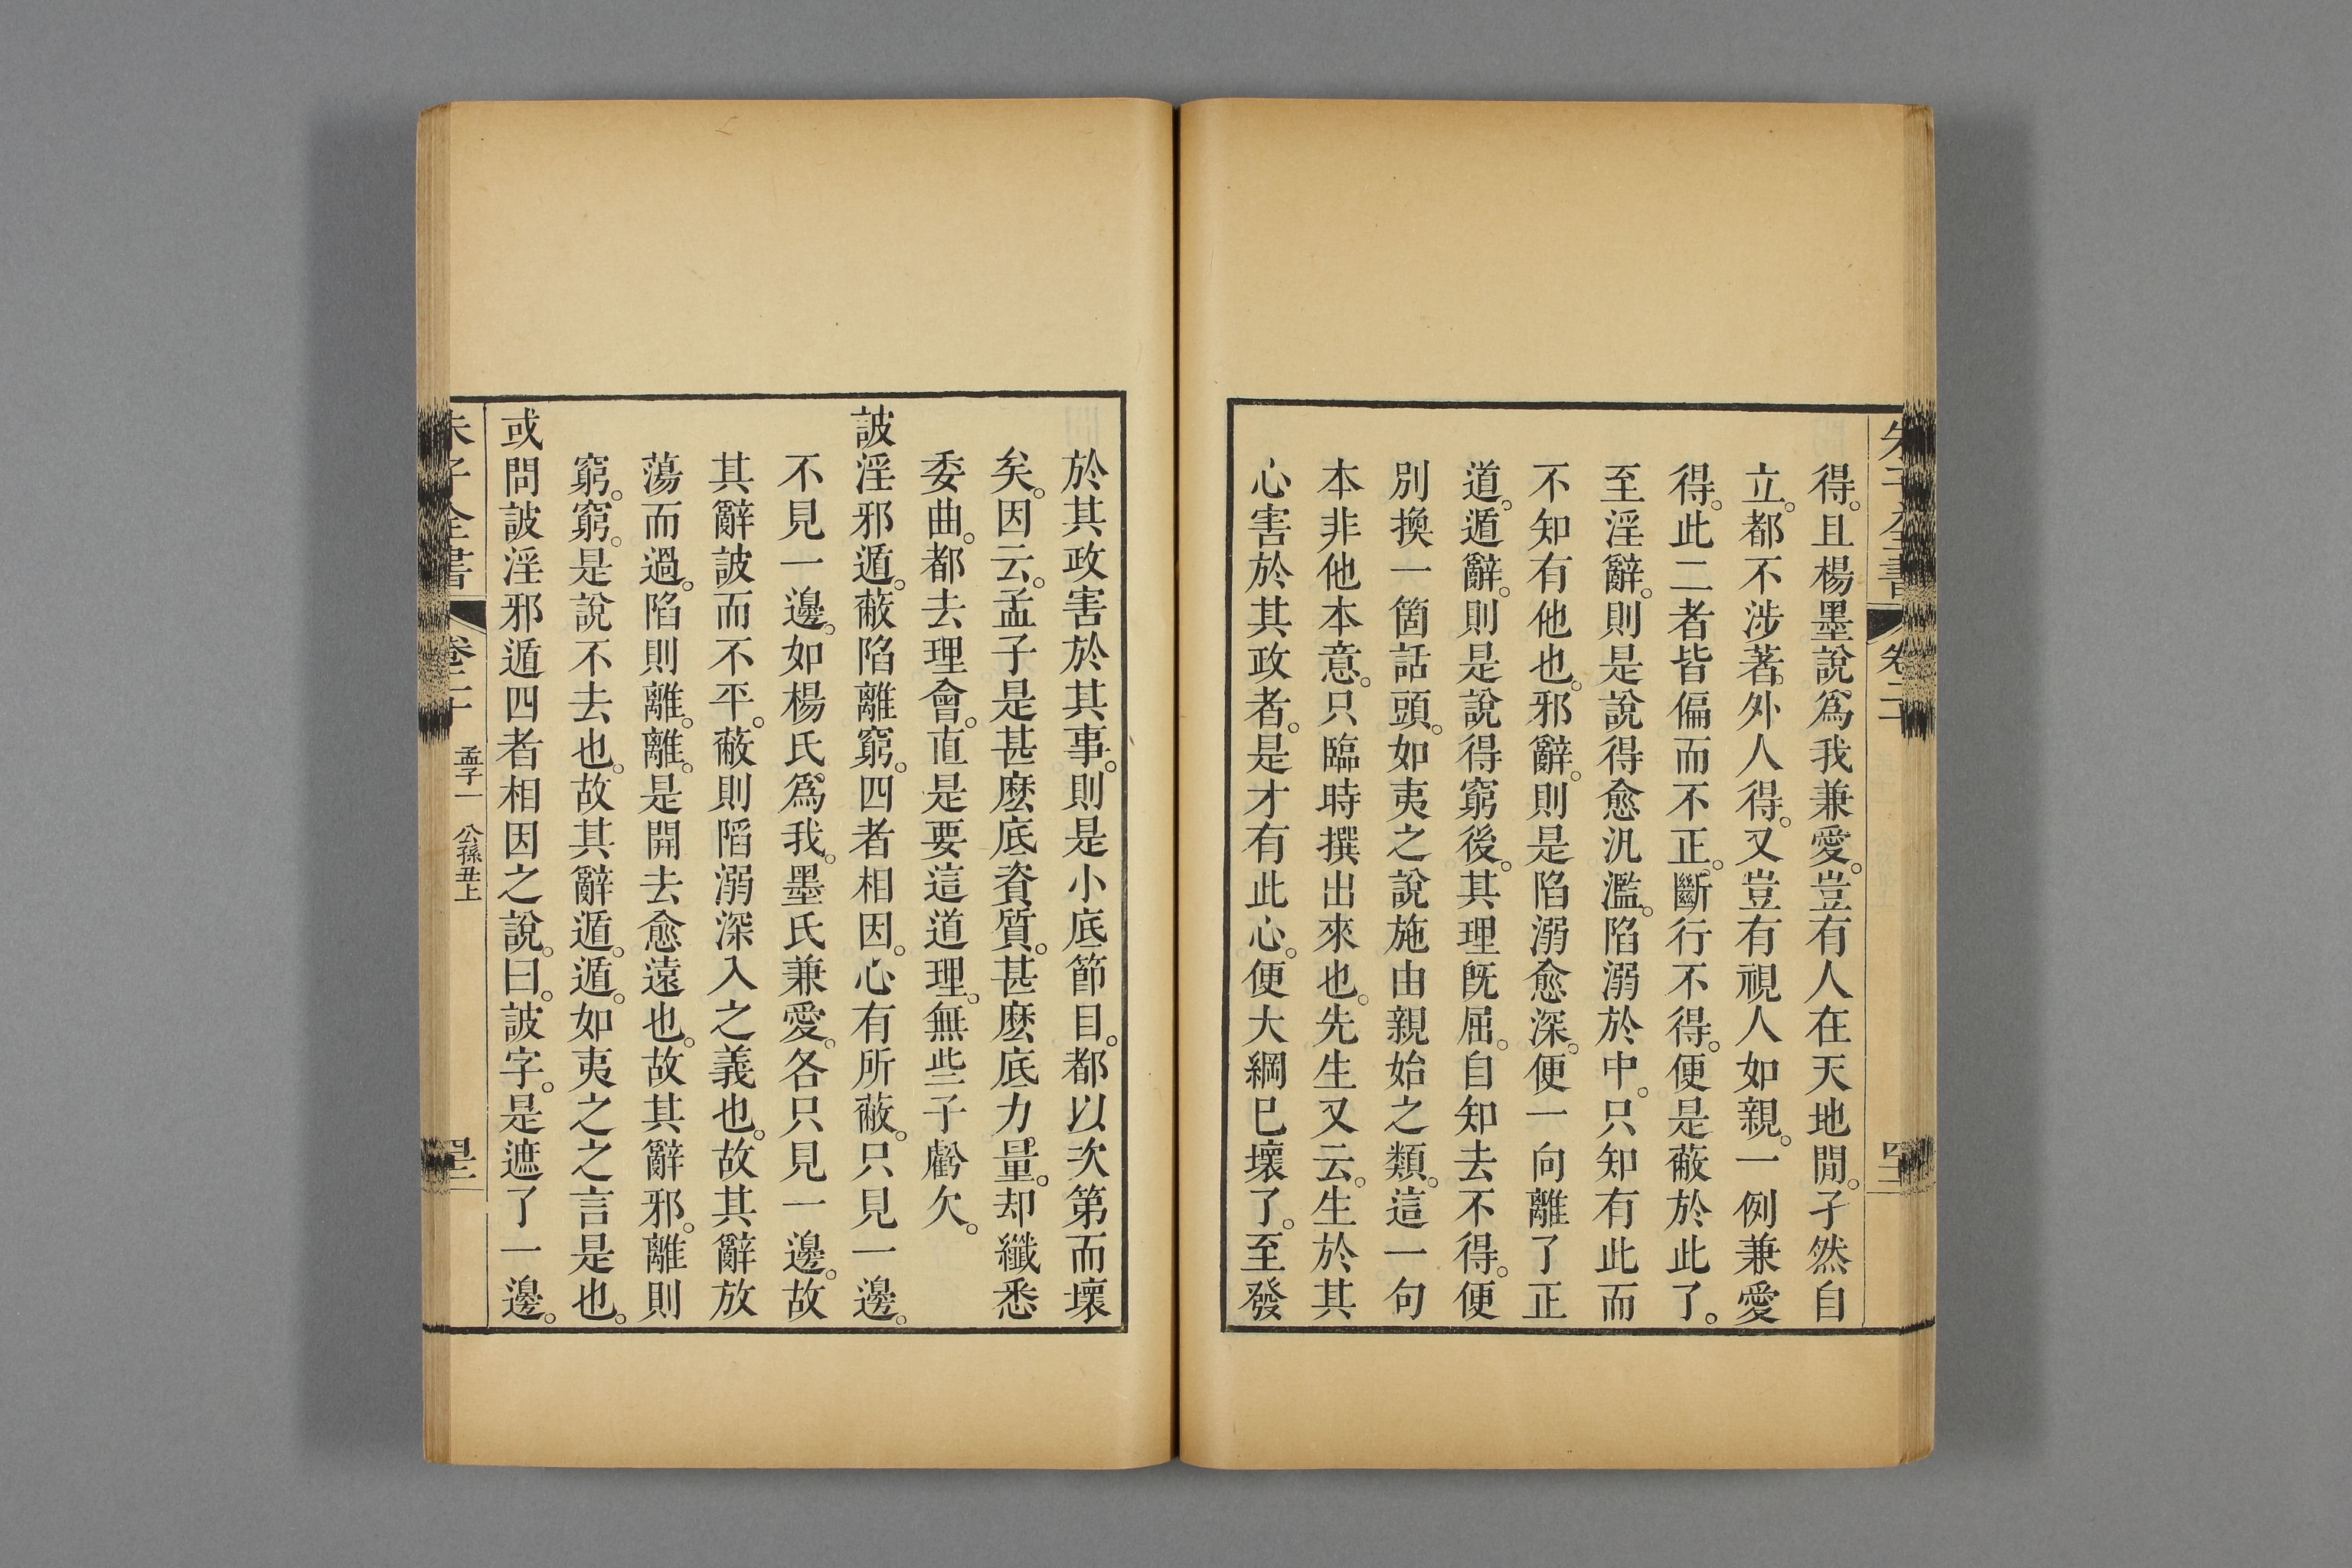 得。且楊墨說爲我兼愛。豈有人在天地閒。孑然自
立。都不涉著外人得。又豈有視人如親。一例兼愛
得。此二者皆偏而不正。斷行不得。便是蔽於此了。
至淫辭。則是說得愈汎濫。陷溺於中。只知有此而
不知有他也。邪辭。則是陷溺愈深。便一向離了正
道。遁辭。則是說得窮後。其理旣屈。自知去不得。便
別換一箇話頭。如夷之說施由親始之類。這一句
本非他本意。只臨時撰出來也。先生又云。生於其
心害於其政者。是才有此心。便大綱已壞了。至發
於其政害於其事。則是小底節目。都以次第而壞
矣。因云。孟子是甚麽底資質。甚麽底力量。却纖悉
委曲。都去理會。直是要這道理。無些子虧欠。
詖淫邪遁。蔽陷離窮。四者相因。心有所蔽。只見一邊。
不見一邊。如楊氏爲我。墨氏兼愛。各只見一邊。故
其辭詖而不平。蔽則陷溺深入之義也。故其辭放
蕩而過。陷則離。離。是開去愈遠也。故其辭邪。離則
窮。窮。是說不去也。故其辭遁。遁。如夷之之言是也。
或問詖淫邪遁四者相因之說。曰。詖字。是遮了一邊。
朱子全書
卷二十
孟子一 公孫丑上